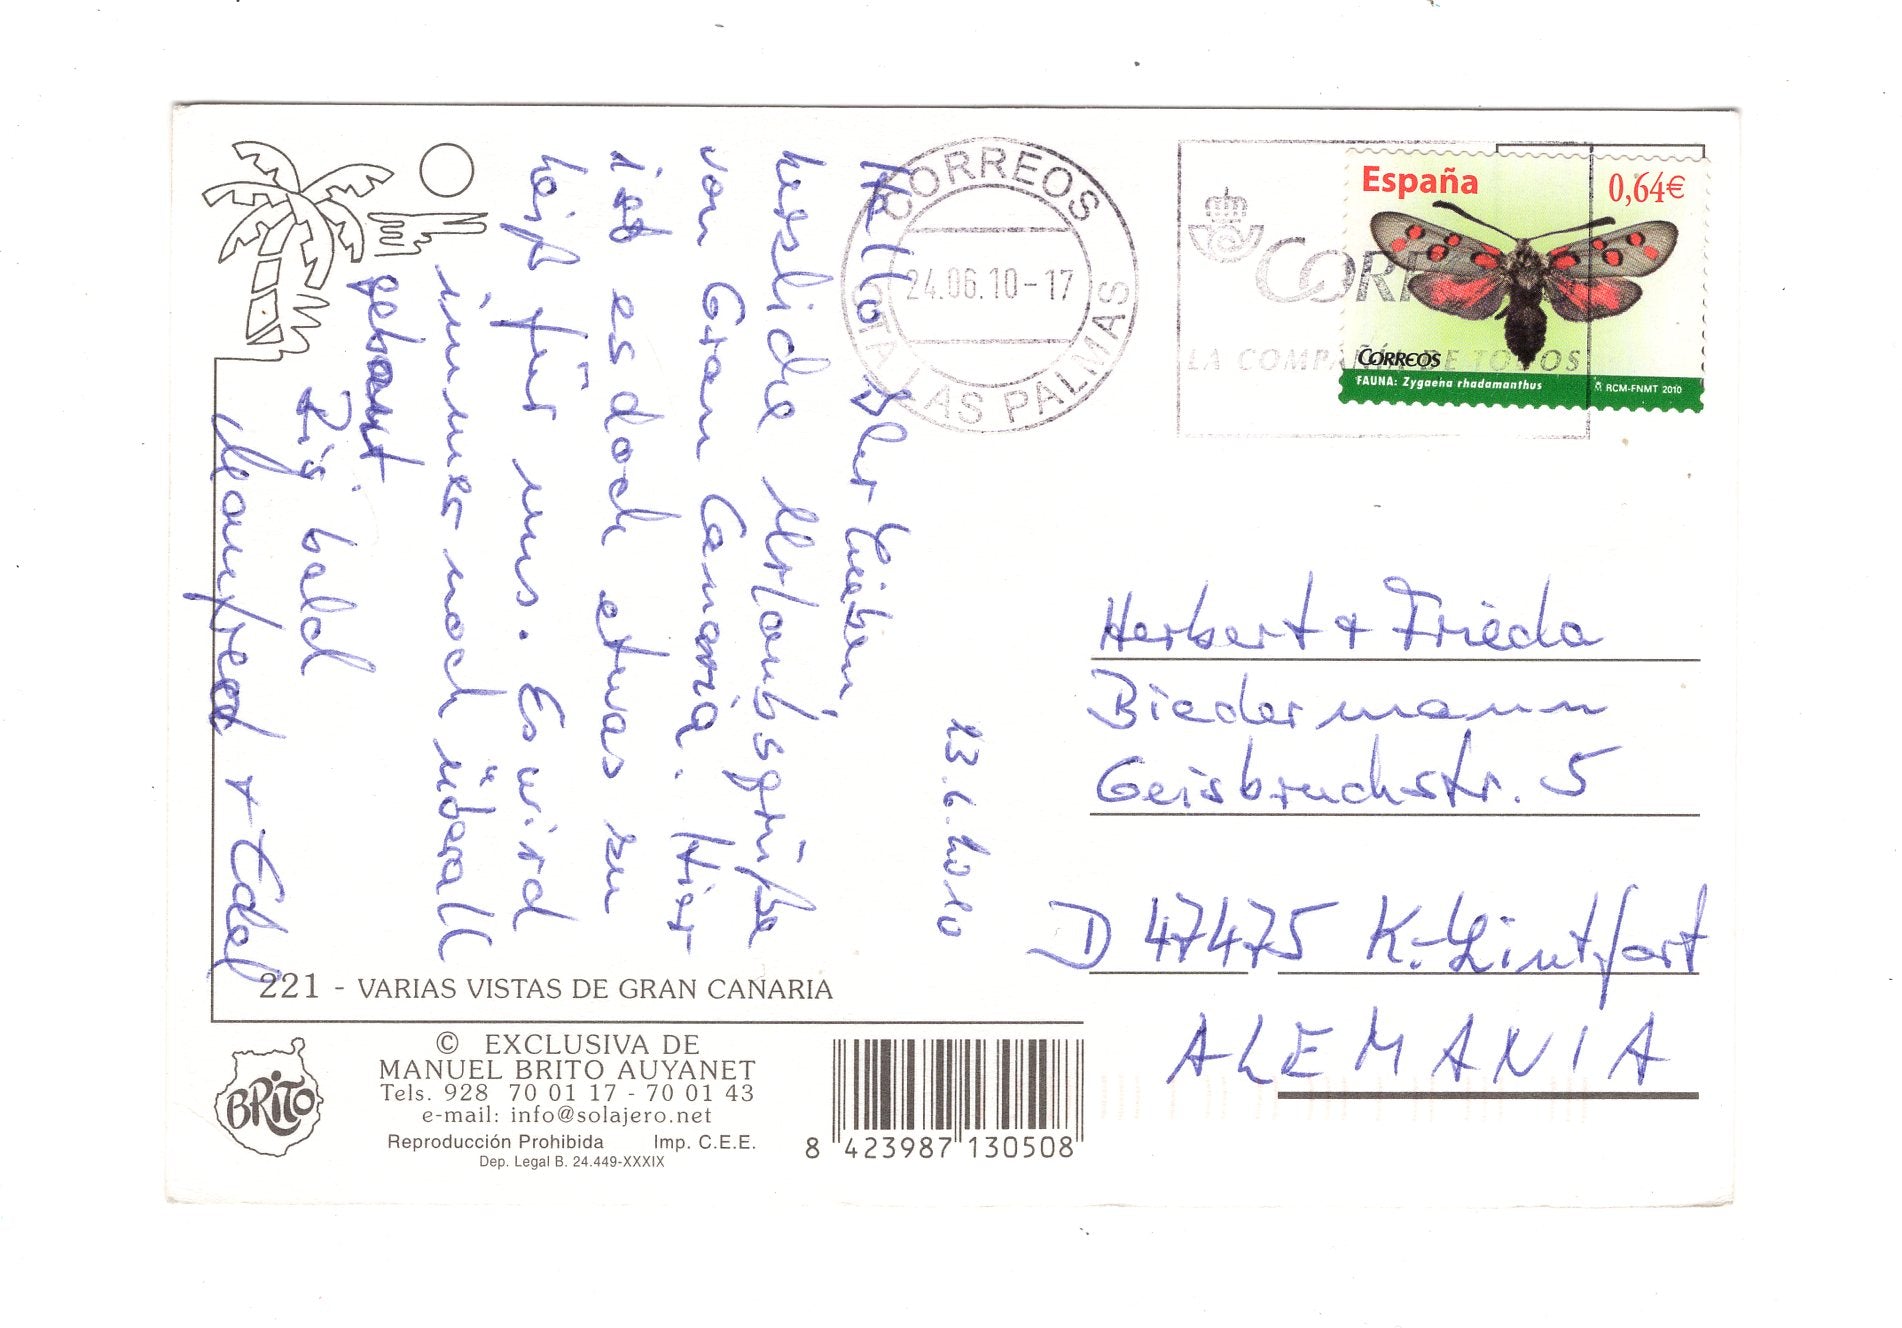 13.6.2010
Hallo Ihr Lieben
herzliche Urlaubsgrüße
von Gran Canaria. Hier
ist es doch etwas zu
heiß für uns. Es wird
immer noch überall
gebaut
Bis bald
Manfred + Edel
221 - VARIAS VISTAS DE GRAN CANARIA
BRITO
© EXCLUSIVA DE
MANUEL BRITO AUYANET
Tels. 928 70 01 17 - 70 01 43
e-mail: info@solajero.net
Reproducción Prohibida Imp. C.E.E.
Dep. Legal B. 24.449-XXXIX
8 423987 130508
CORREOS
24.06.10-17
LAS PALMAS
CORR
LA COMPAÑÍA DE TODOS
España 0,64€
CORREOS
FAUNA: Zygaena rhadamanthus RCM-FNMT 2010
Herbert + Frieda
Biedermann
Geisbruchstr. 5
D 47475 K.-Lintfort
ALEMANIA